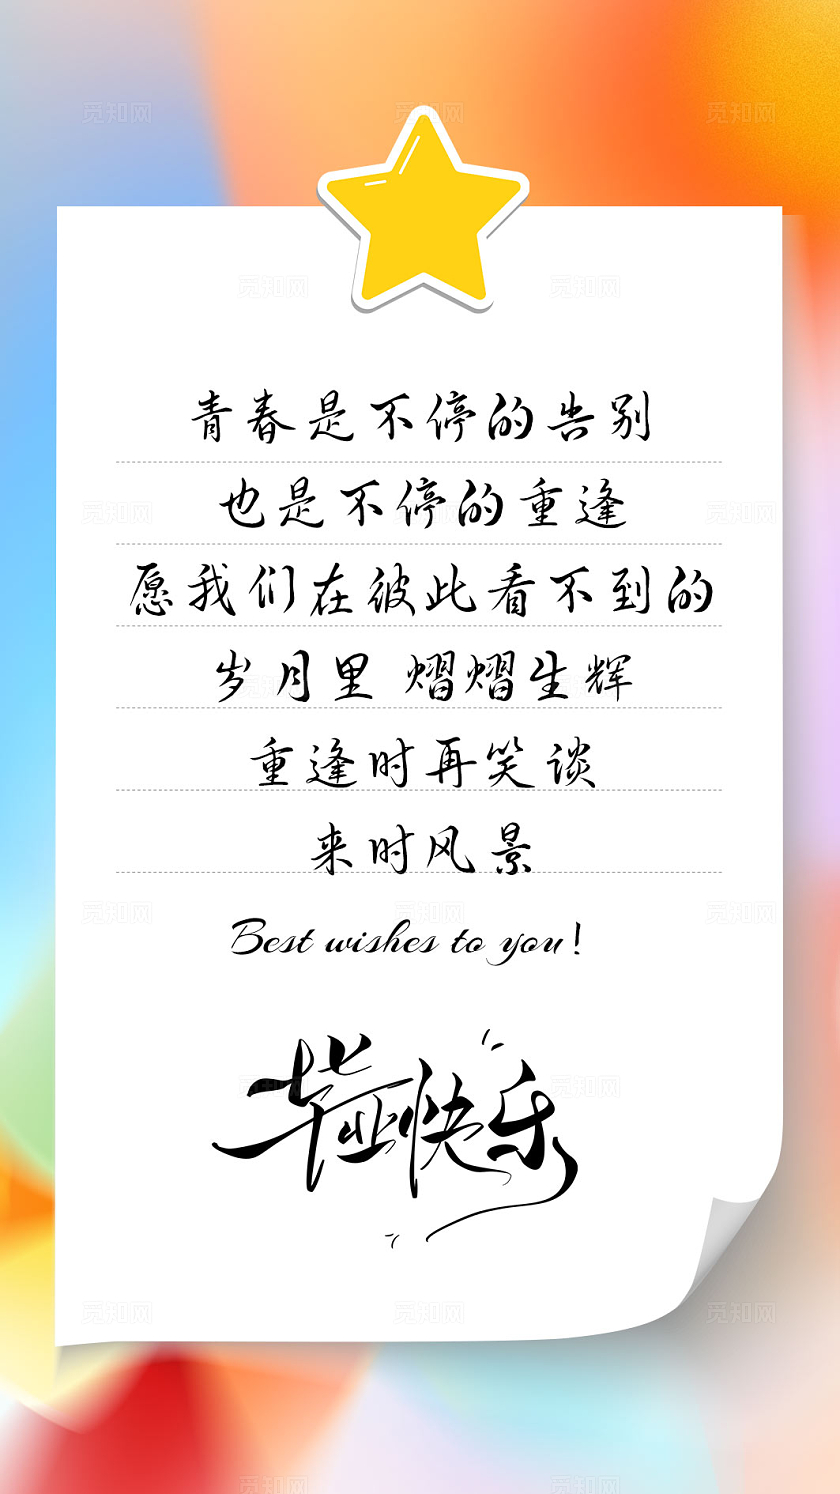 青春是不停的告别
也是不停的重逢
愿我们在彼此看不到的
岁月里 熠熠生辉
重逢时再笑谈
来时风景
Best wishes to you!
毕业快乐
觅知网